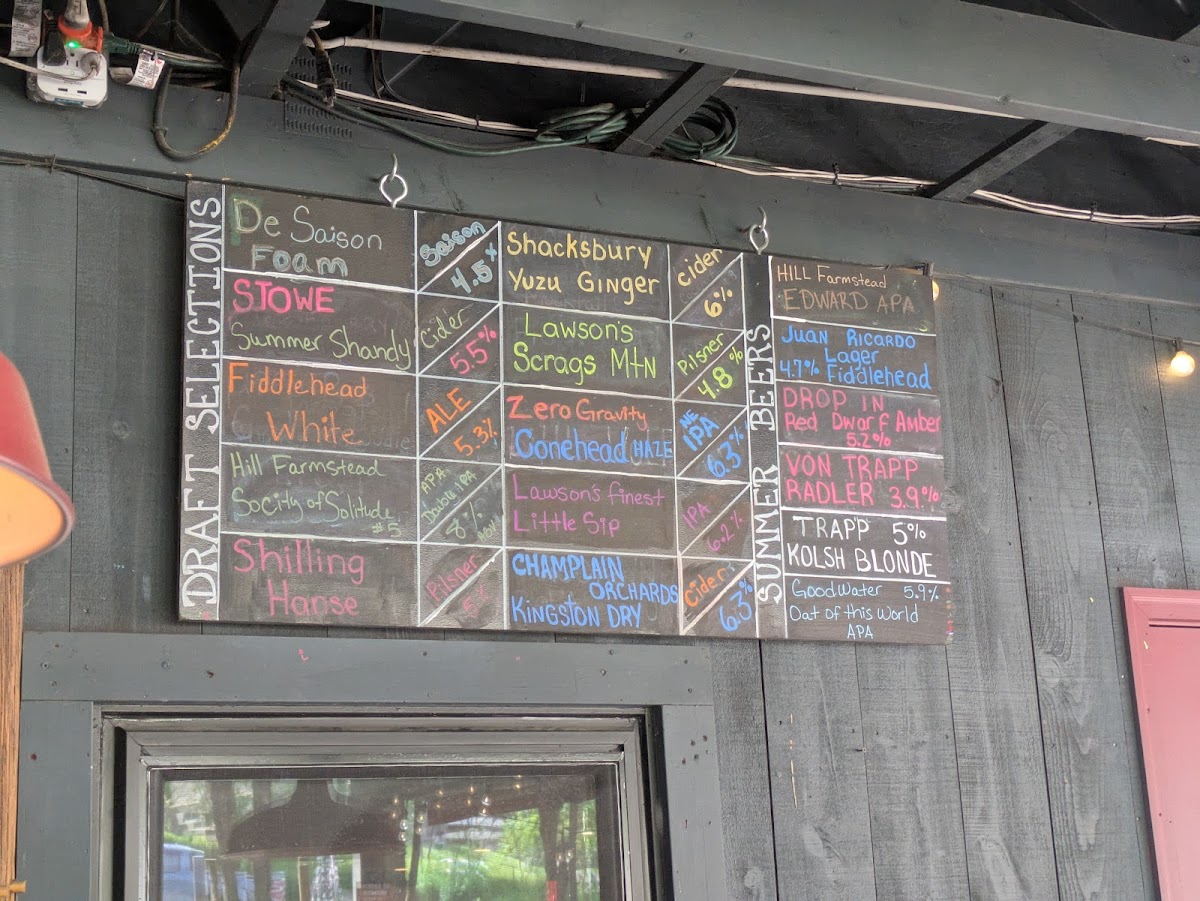 DRAFT SELECTIONS
De Saison
Foam
Saison
4.5%
STOWE
Summer Shandy
Cider
5.5%
Fiddlehead
White
ALE
5.3%
Hill Farmstead
Socity of Solitude
#5
APA
Double IPA
8%
Shilling
Hanse
Pilsner
Shacksbury
Yuzu Ginger
Cider
6%
Lawson's
Scrags Mtn
Pilsner
4.8%
Zero Gravity
Conehead HAZE
NE
IPA
6.3%
Lawson's finest
Little Sip
IPA
6.2%
CHAMPLAIN
ORCHARDS
KINGSTON DRY
Cider
6.3%
SUMMER BEERS
HILL Farmstead
EDWARD APA
JUAN RICARDO
Lager
4.7% Fiddlehead
DROP IN
Red Dwarf Amber
5.2%
VON TRAPP
RADLER 3.9%
TRAPP 5%
KOLSH BLONDE
GoodWater 5.9%
Oat of this World
APA